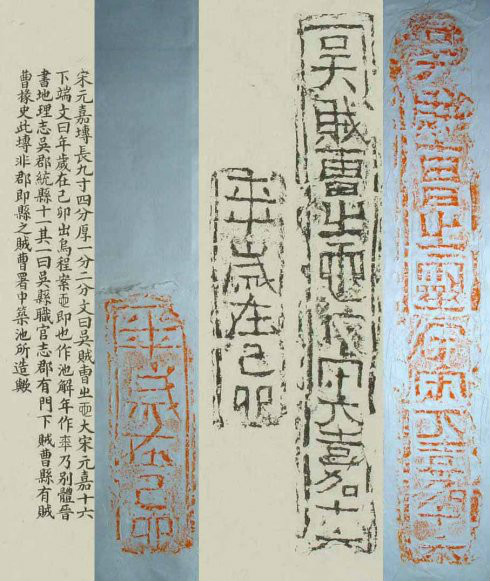 吳賊曹㞢大宋元嘉十六
吳賊曹㞢大宋元嘉十六
年歲在己卯
年歲在己卯
宋元嘉塼長九寸四分厚一分二分文曰吳賊曹㞢大宋元嘉十六
下端文曰年歲在己卯出烏程案即也作池解年作乃別體晉
書地理志吳郡統縣十一其一曰吳縣職官志郡有門下賊曹縣有賊
曹掾史此塼非郡即縣之賊曹署中築池所造歟